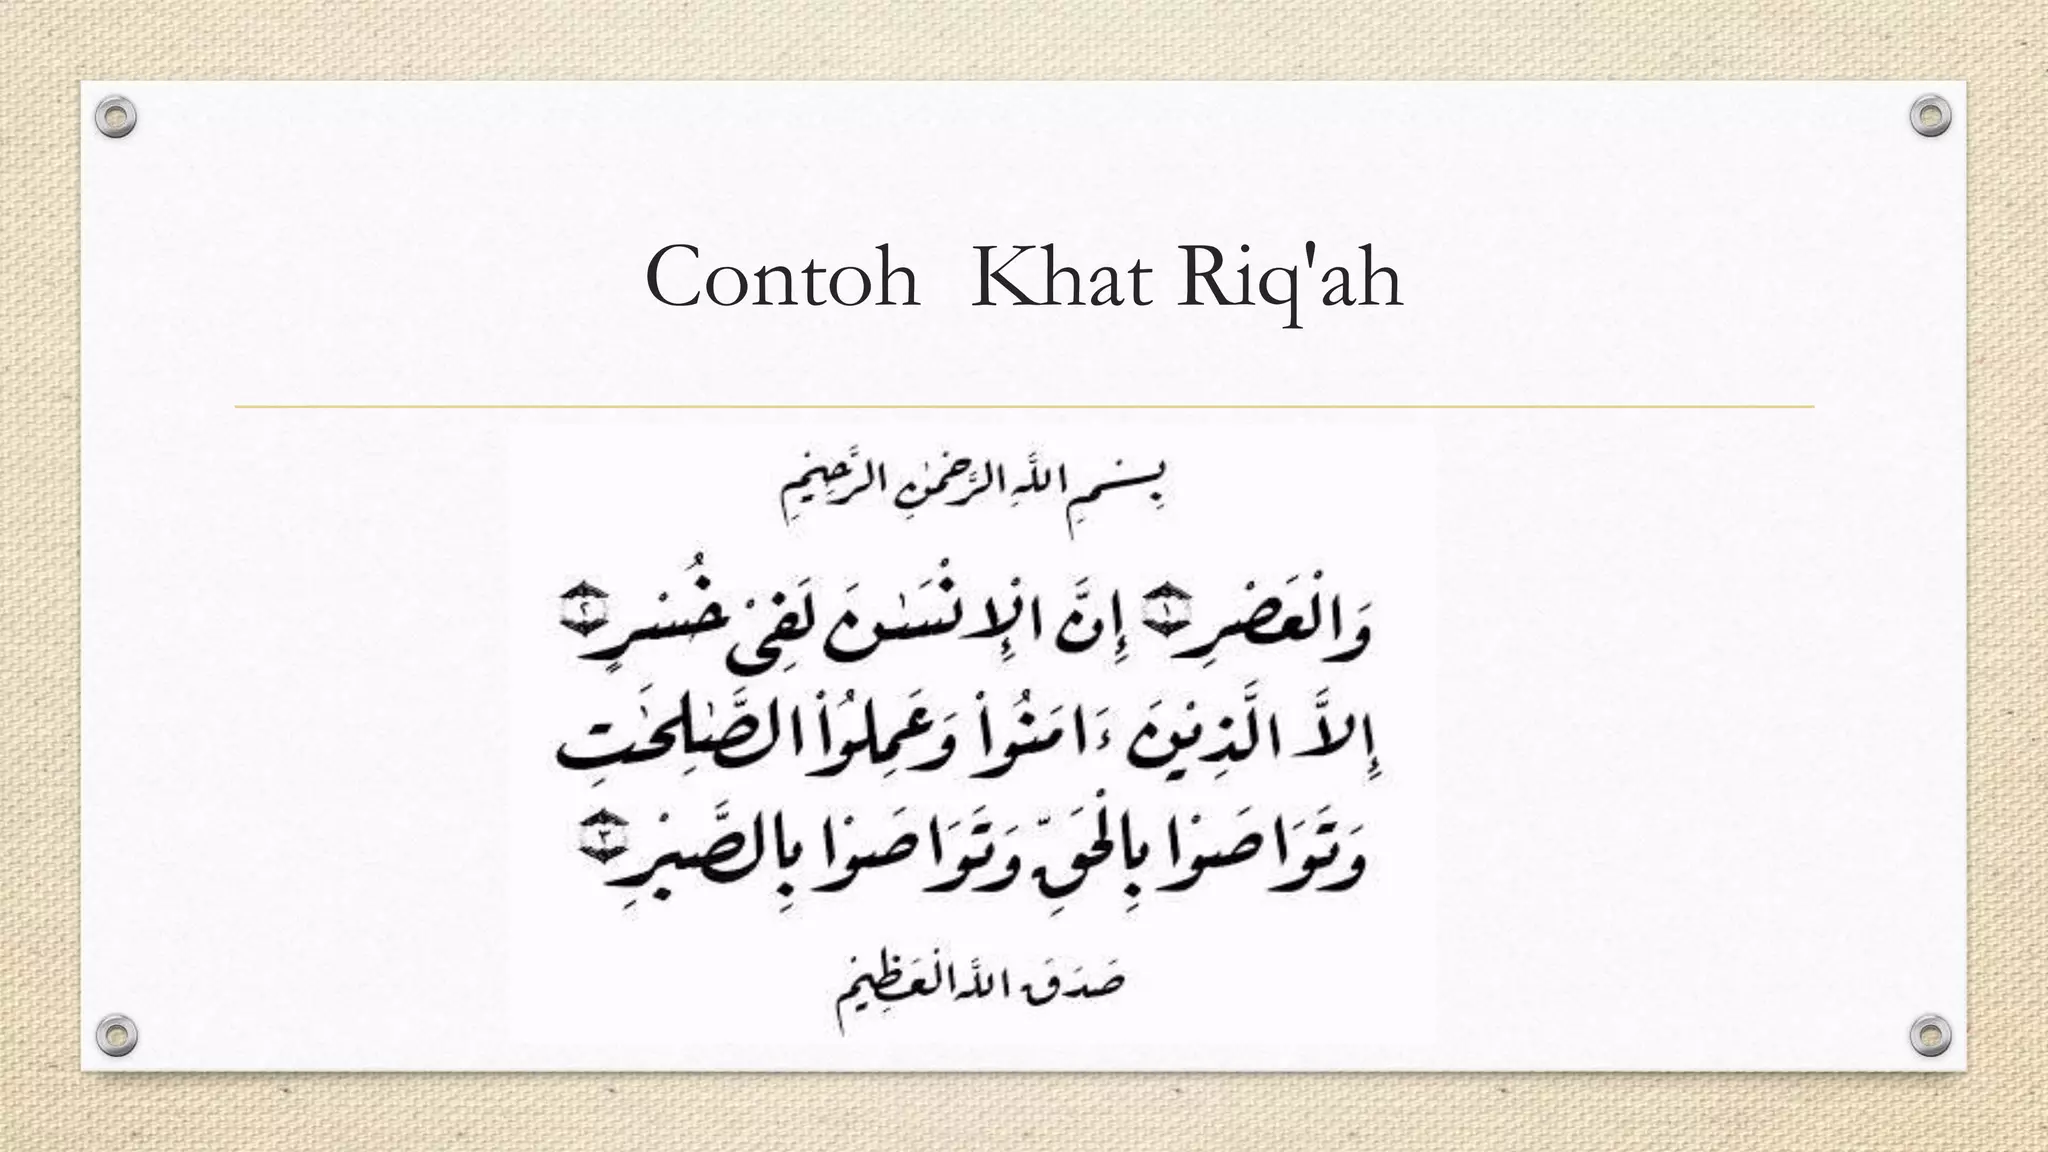 Contoh Khat Riq'ah
بِسْمِ اللَّهِ الرَّحْمٰنِ الرَّحِيْمِ
وَالْعَصْرِ ١ إِنَّ الْإِنْسَٰنَ لَفِيْ خُسْرٍ ٢
إِلَّا الَّذِيْنَ ءَامَنُواْ وَعَمِلُواْ الصَّٰلِحَٰتِ
وَتَوَاصَوْا بِالْحَقِّ وَتَوَاصَوْا بِالصَّبْرِ ٣
صَدَقَ اللَّهُ الْعَظِيْم